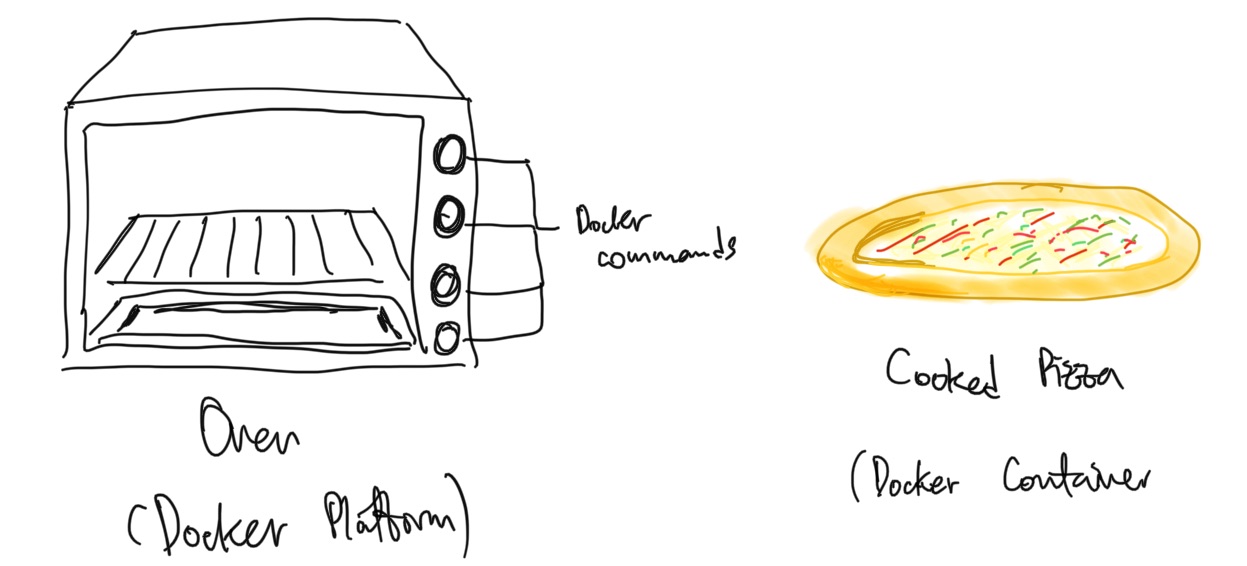 Docker
commands
Oven
(Docker Platform)
Cooked Pizza
(Docker Container